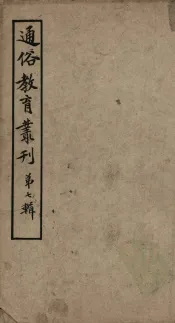 通俗教育叢刊第七輯